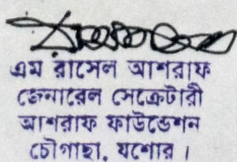 এম রাসেল আশরাফ
জেনারেল সেক্রেটারী
আশরাফ ফাউন্ডেশন
চৌগাছা, যশোর ।